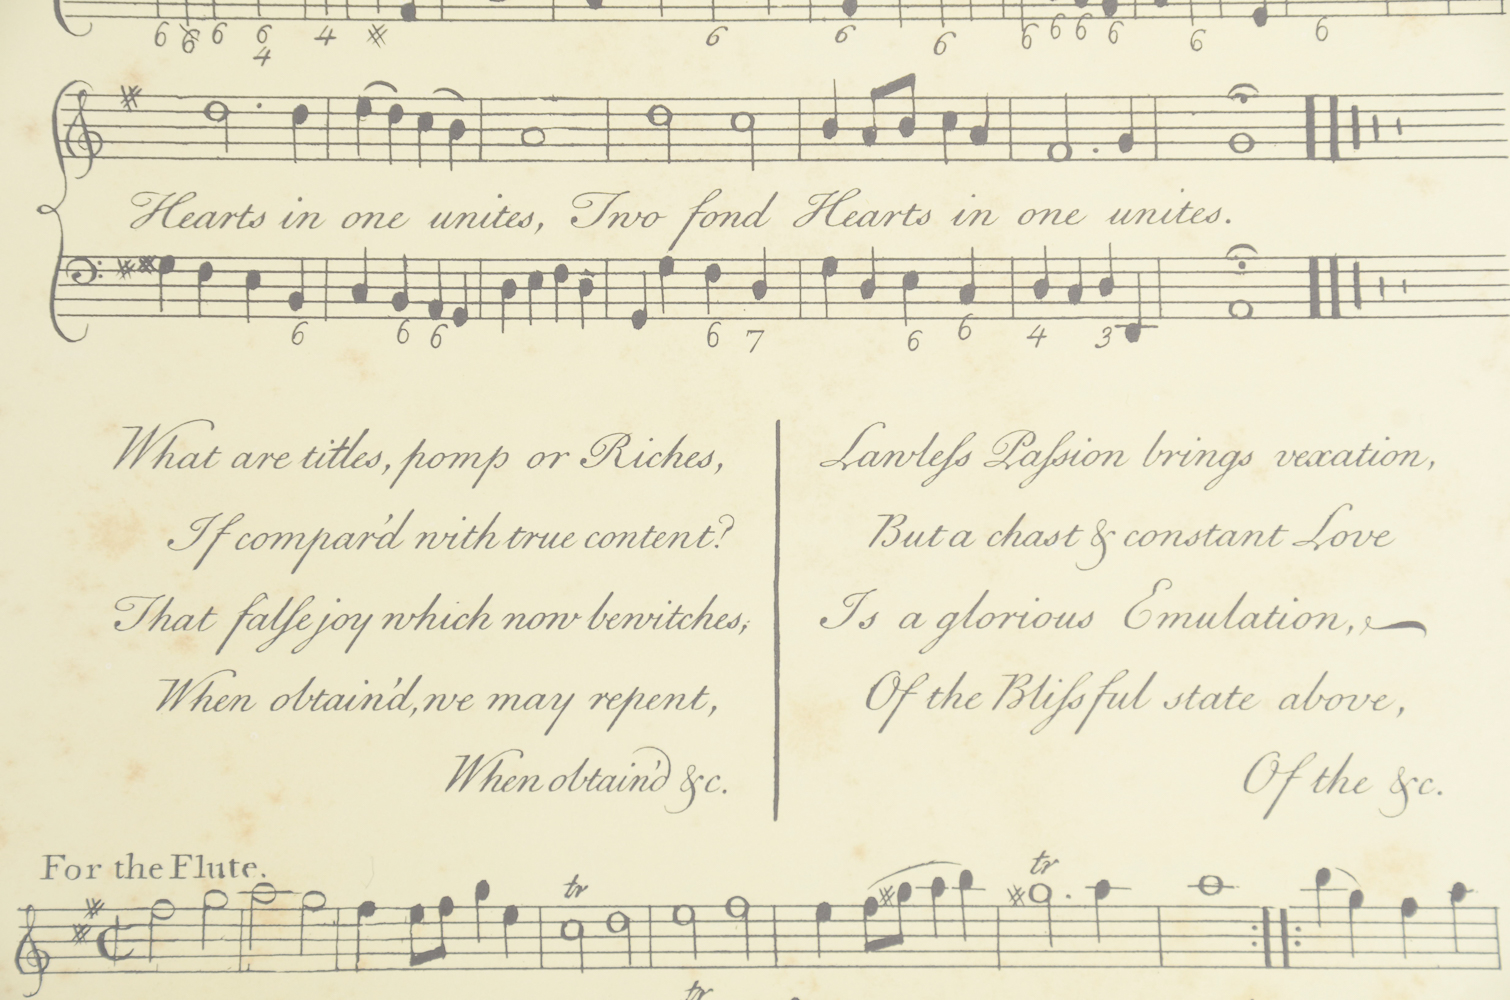 6 6 6 6 4 6 6 6 6 6 6 6 6 6
4
Hearts in one unites, Two fond Hearts in one unites.
6 6 6 6 7 6 6 4 3
What are titles, pomp or Riches,
If compar'd with true content?
That falſe joy which now bewitches,
When obtain'd, we may repent,
When obtain'd &c.
Lawleſs Paſsion brings vexation,
But a chast & constant Love
Is a glorious Emulation,
Of the Bliſsful state above,
Of the &c.
For the Flute.
tr tr
tr